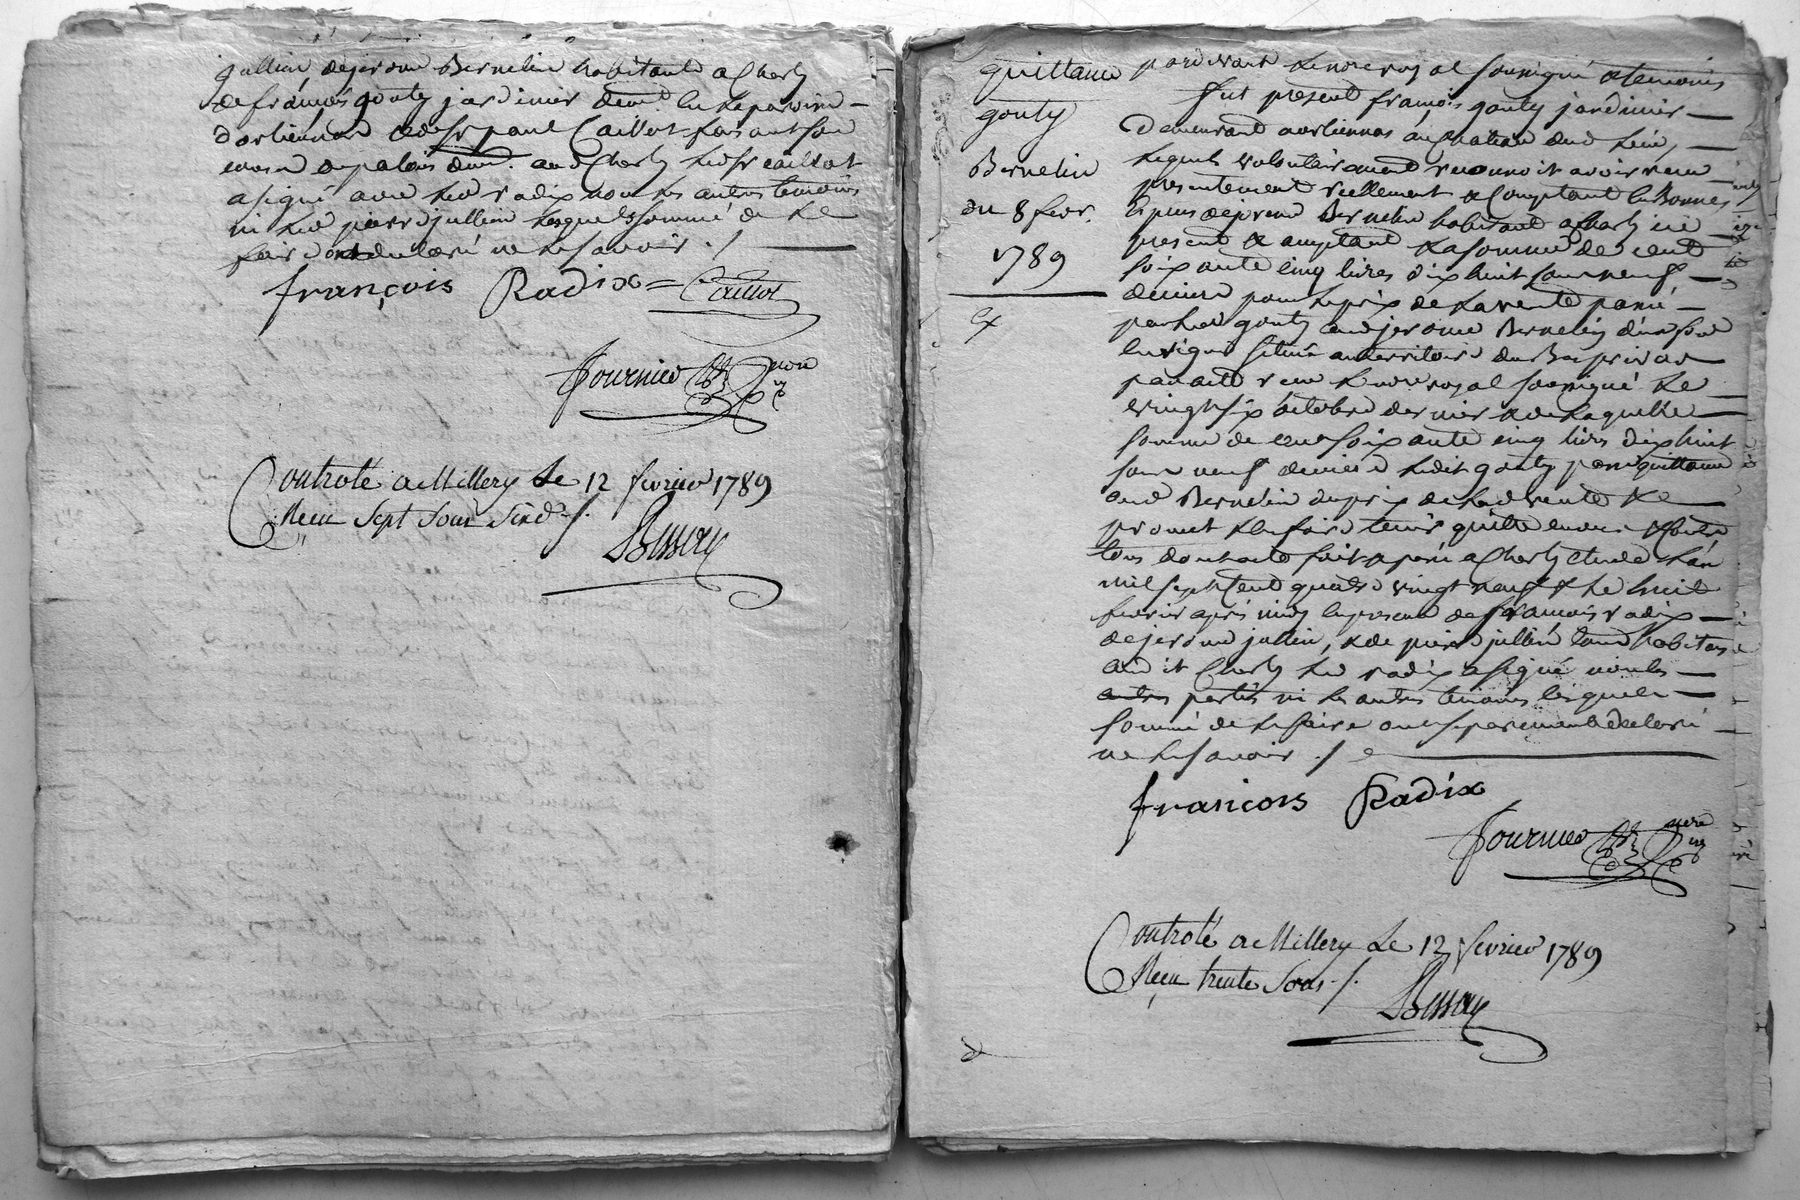 jullien, de jerome Bernelin habitants a Charly
de françois gouty jardinier dem.t en la paroisse
d'orliennas & de Sr paul Caillot faisant son
cours de palais dem.t aud Charly led Sr caillot
a signé avec led radix non les autres temoins
ni led pierre jullien lesquels sommé de le
faire ont declaré ne le savoir ./.
françois Radix = Caillot
Fournier nore
Controlé a Millery Le 12 fevrier 1789
Recu Sept Sous Six d ./.
Bessey
quittance
gouty
Bernelin
du 8 fevr.
1789
pardevant le nore royal soussigné & temoins
fut présent françois gouty jardinier
demeurant a orliennas au chateau dud lieu,
lequel volontairement reconnoit avoir recu
presentement réellement & Comptant en Bonnes
Especes de jerome Bernelin habitant a Charly ici
present & acceptant la somme de cent
soixante cinq livres dix huit sous neuf
deniers pour le prix de la vente passée
par led gouty aud jerome Bernelin d'un fond
en vigne situé au territoire du
par acte recu le nore royal soussigné le
vingt six octobre dernier & de laquelle
somme de cent soixante cinq livres dix huit
sous neuf deniers ledit gouty passe quittance
aud Bernelin du prix de lad vente &
promet l'en faire tenir quitte envers & contre
tous dont acte fait & passé a Charly etude l'an
mil sept Cent quatre vingt neuf & le huit
fevrier après midy en presence de françois radix
de jerome jullien, & de pierre jullien tous habitans
audit Charly led radix a signé non les
autres parties ni les autres temoins lesquels
sommé de le faire ont separement declaré
ne le savoir ./.
françois Radix
Fournier nore
Controlé a Millery Le 12 fevrier 1789
Recu trente Sous ./.
Bessey